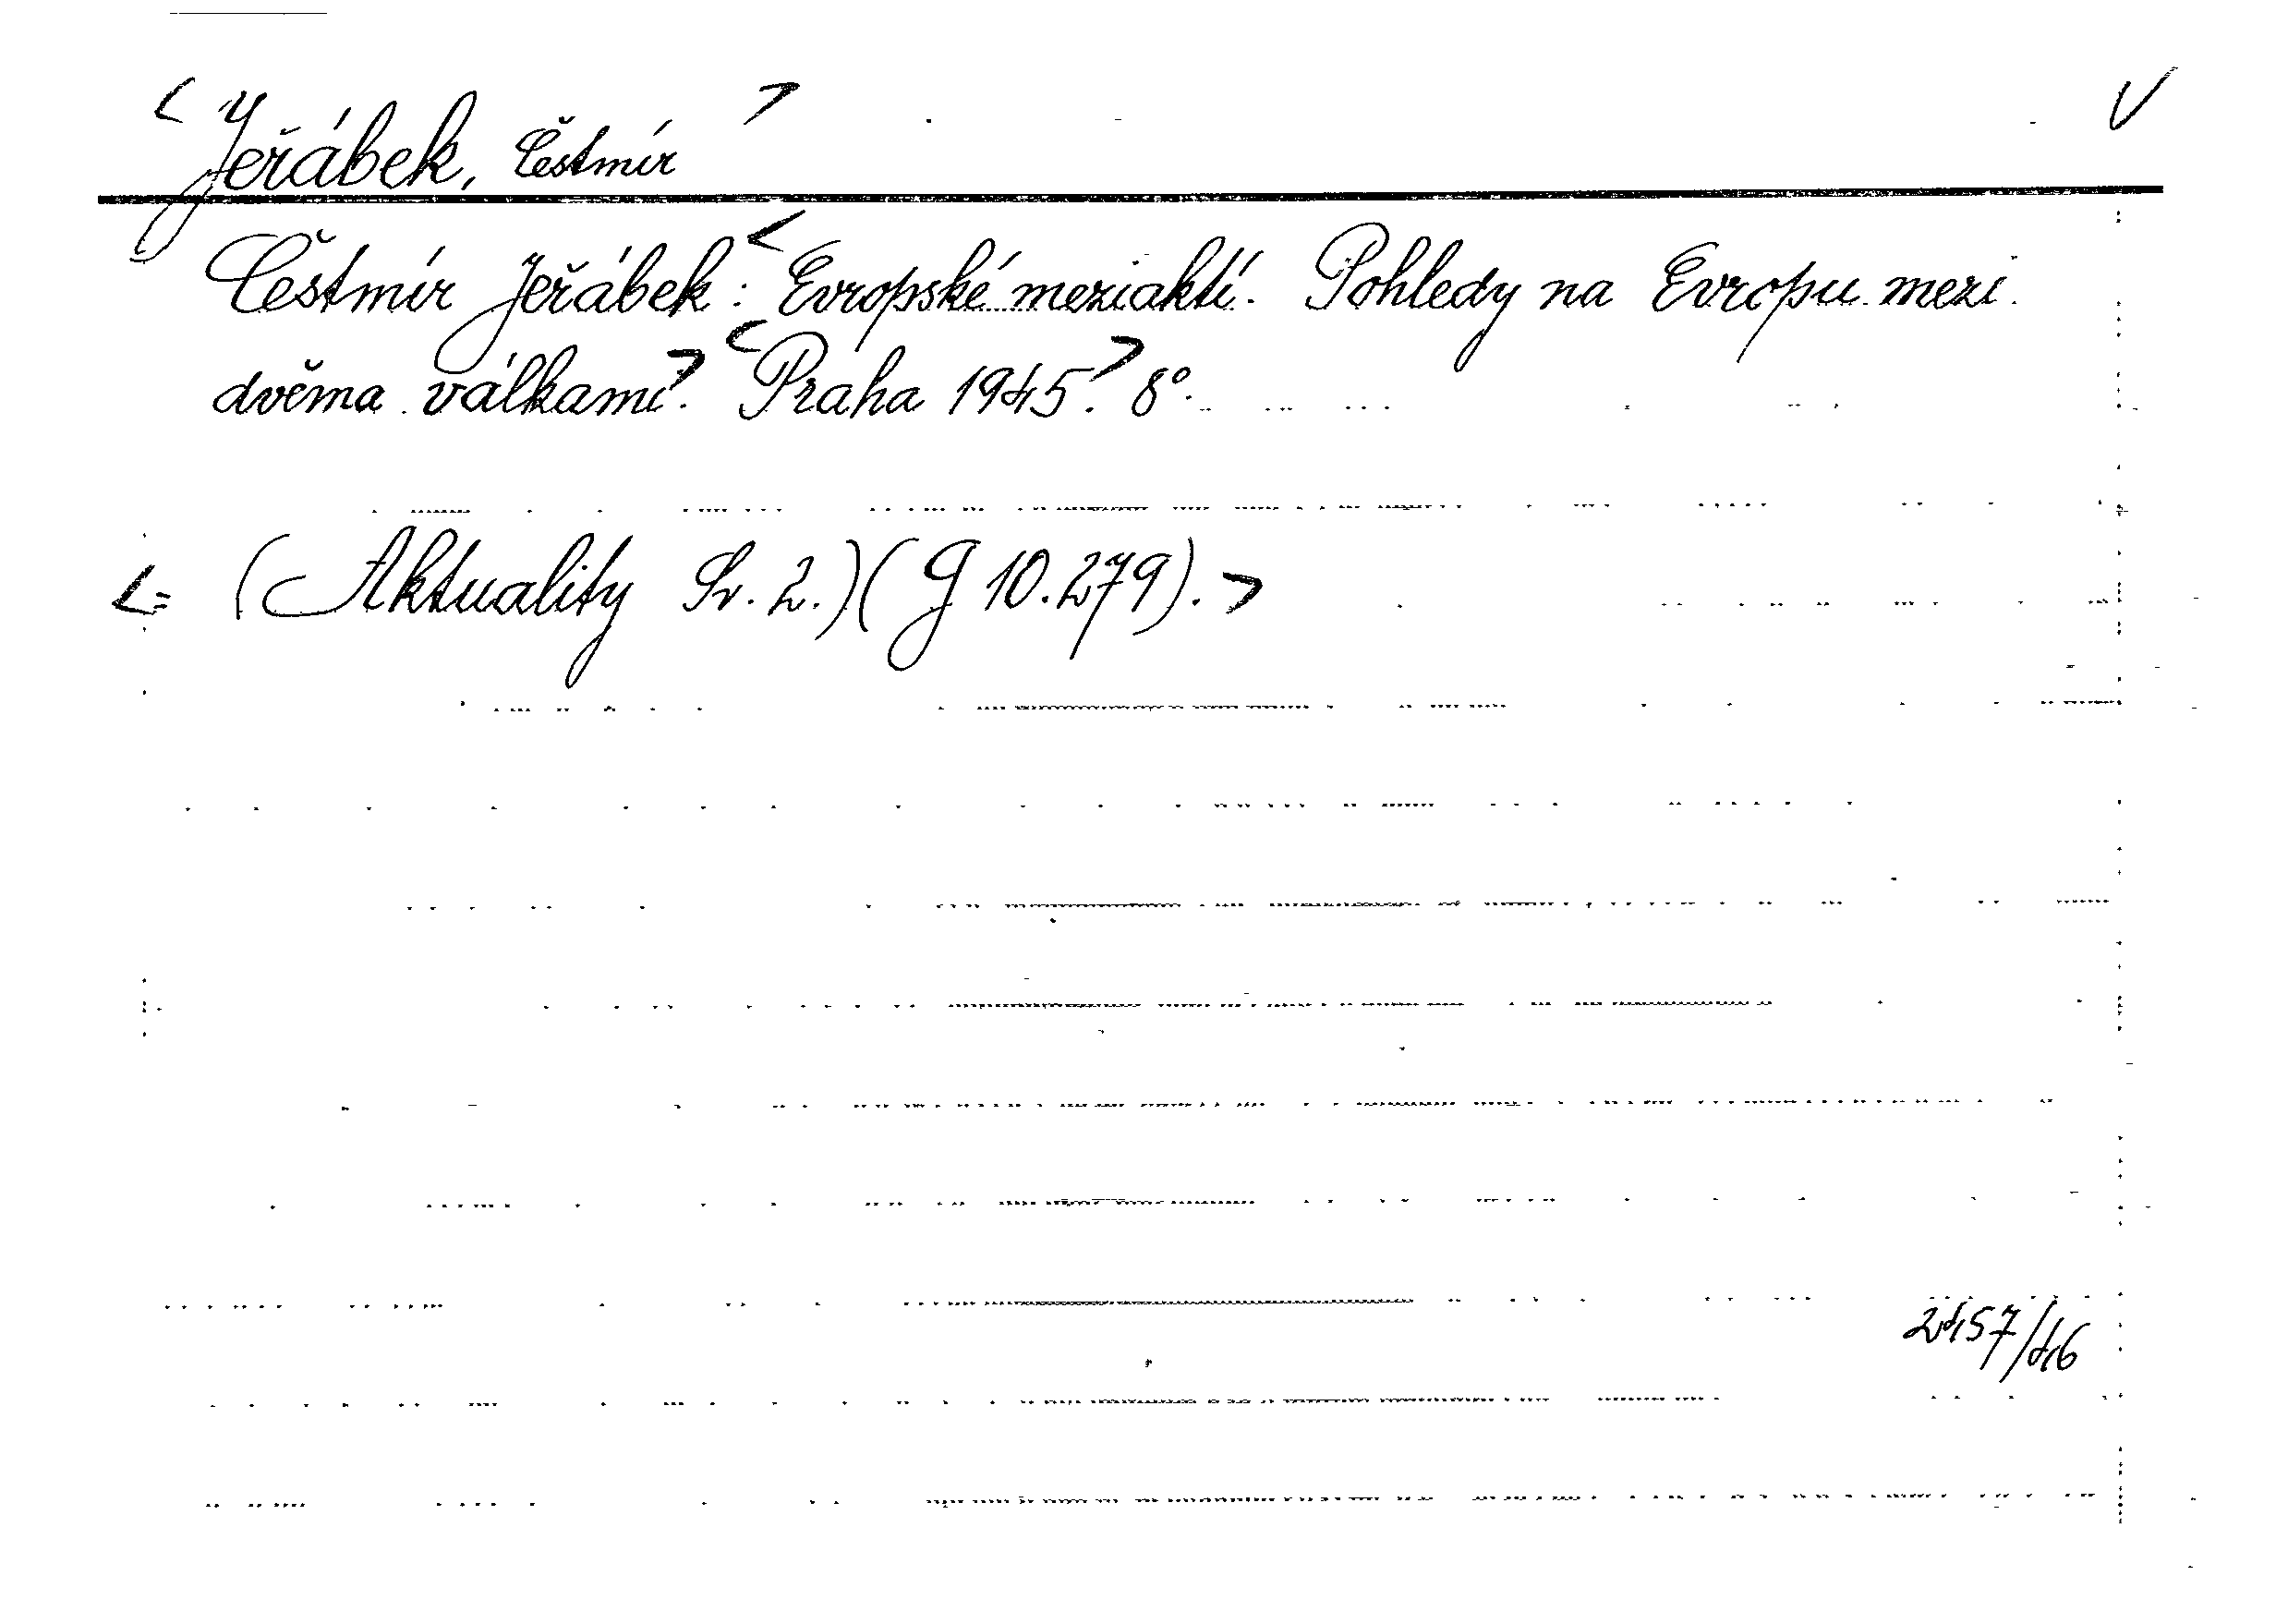 < Jeřábek, Čestmír > V
Čestmír Jeřábek: < Evropské meziaktí. Pohledy na Evropu mezi
dvěma válkami. > < Praha 1945. > 8°.
<= (Aktuality Sv. 2.) (G 10.279). >
2457/46